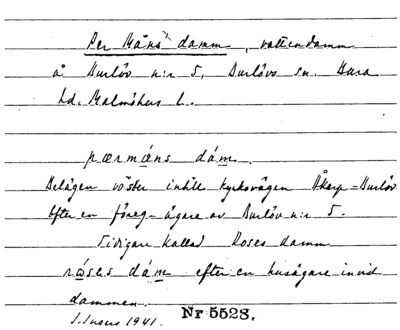 Per Måns damm, vattendamm
å Burlöv n:r 5, Burlövs sn. Bara
hd. Malmöhus l.
pærmáns dám.
Belägen väster intill kyrkovägen Åkarp-Burlöv
Efter en föreg. ägare av Burlöv n:r 5.
Tidigare kallad Roses damm
dám efter en husägare invid
dammen.
1941.
Nr 5528.